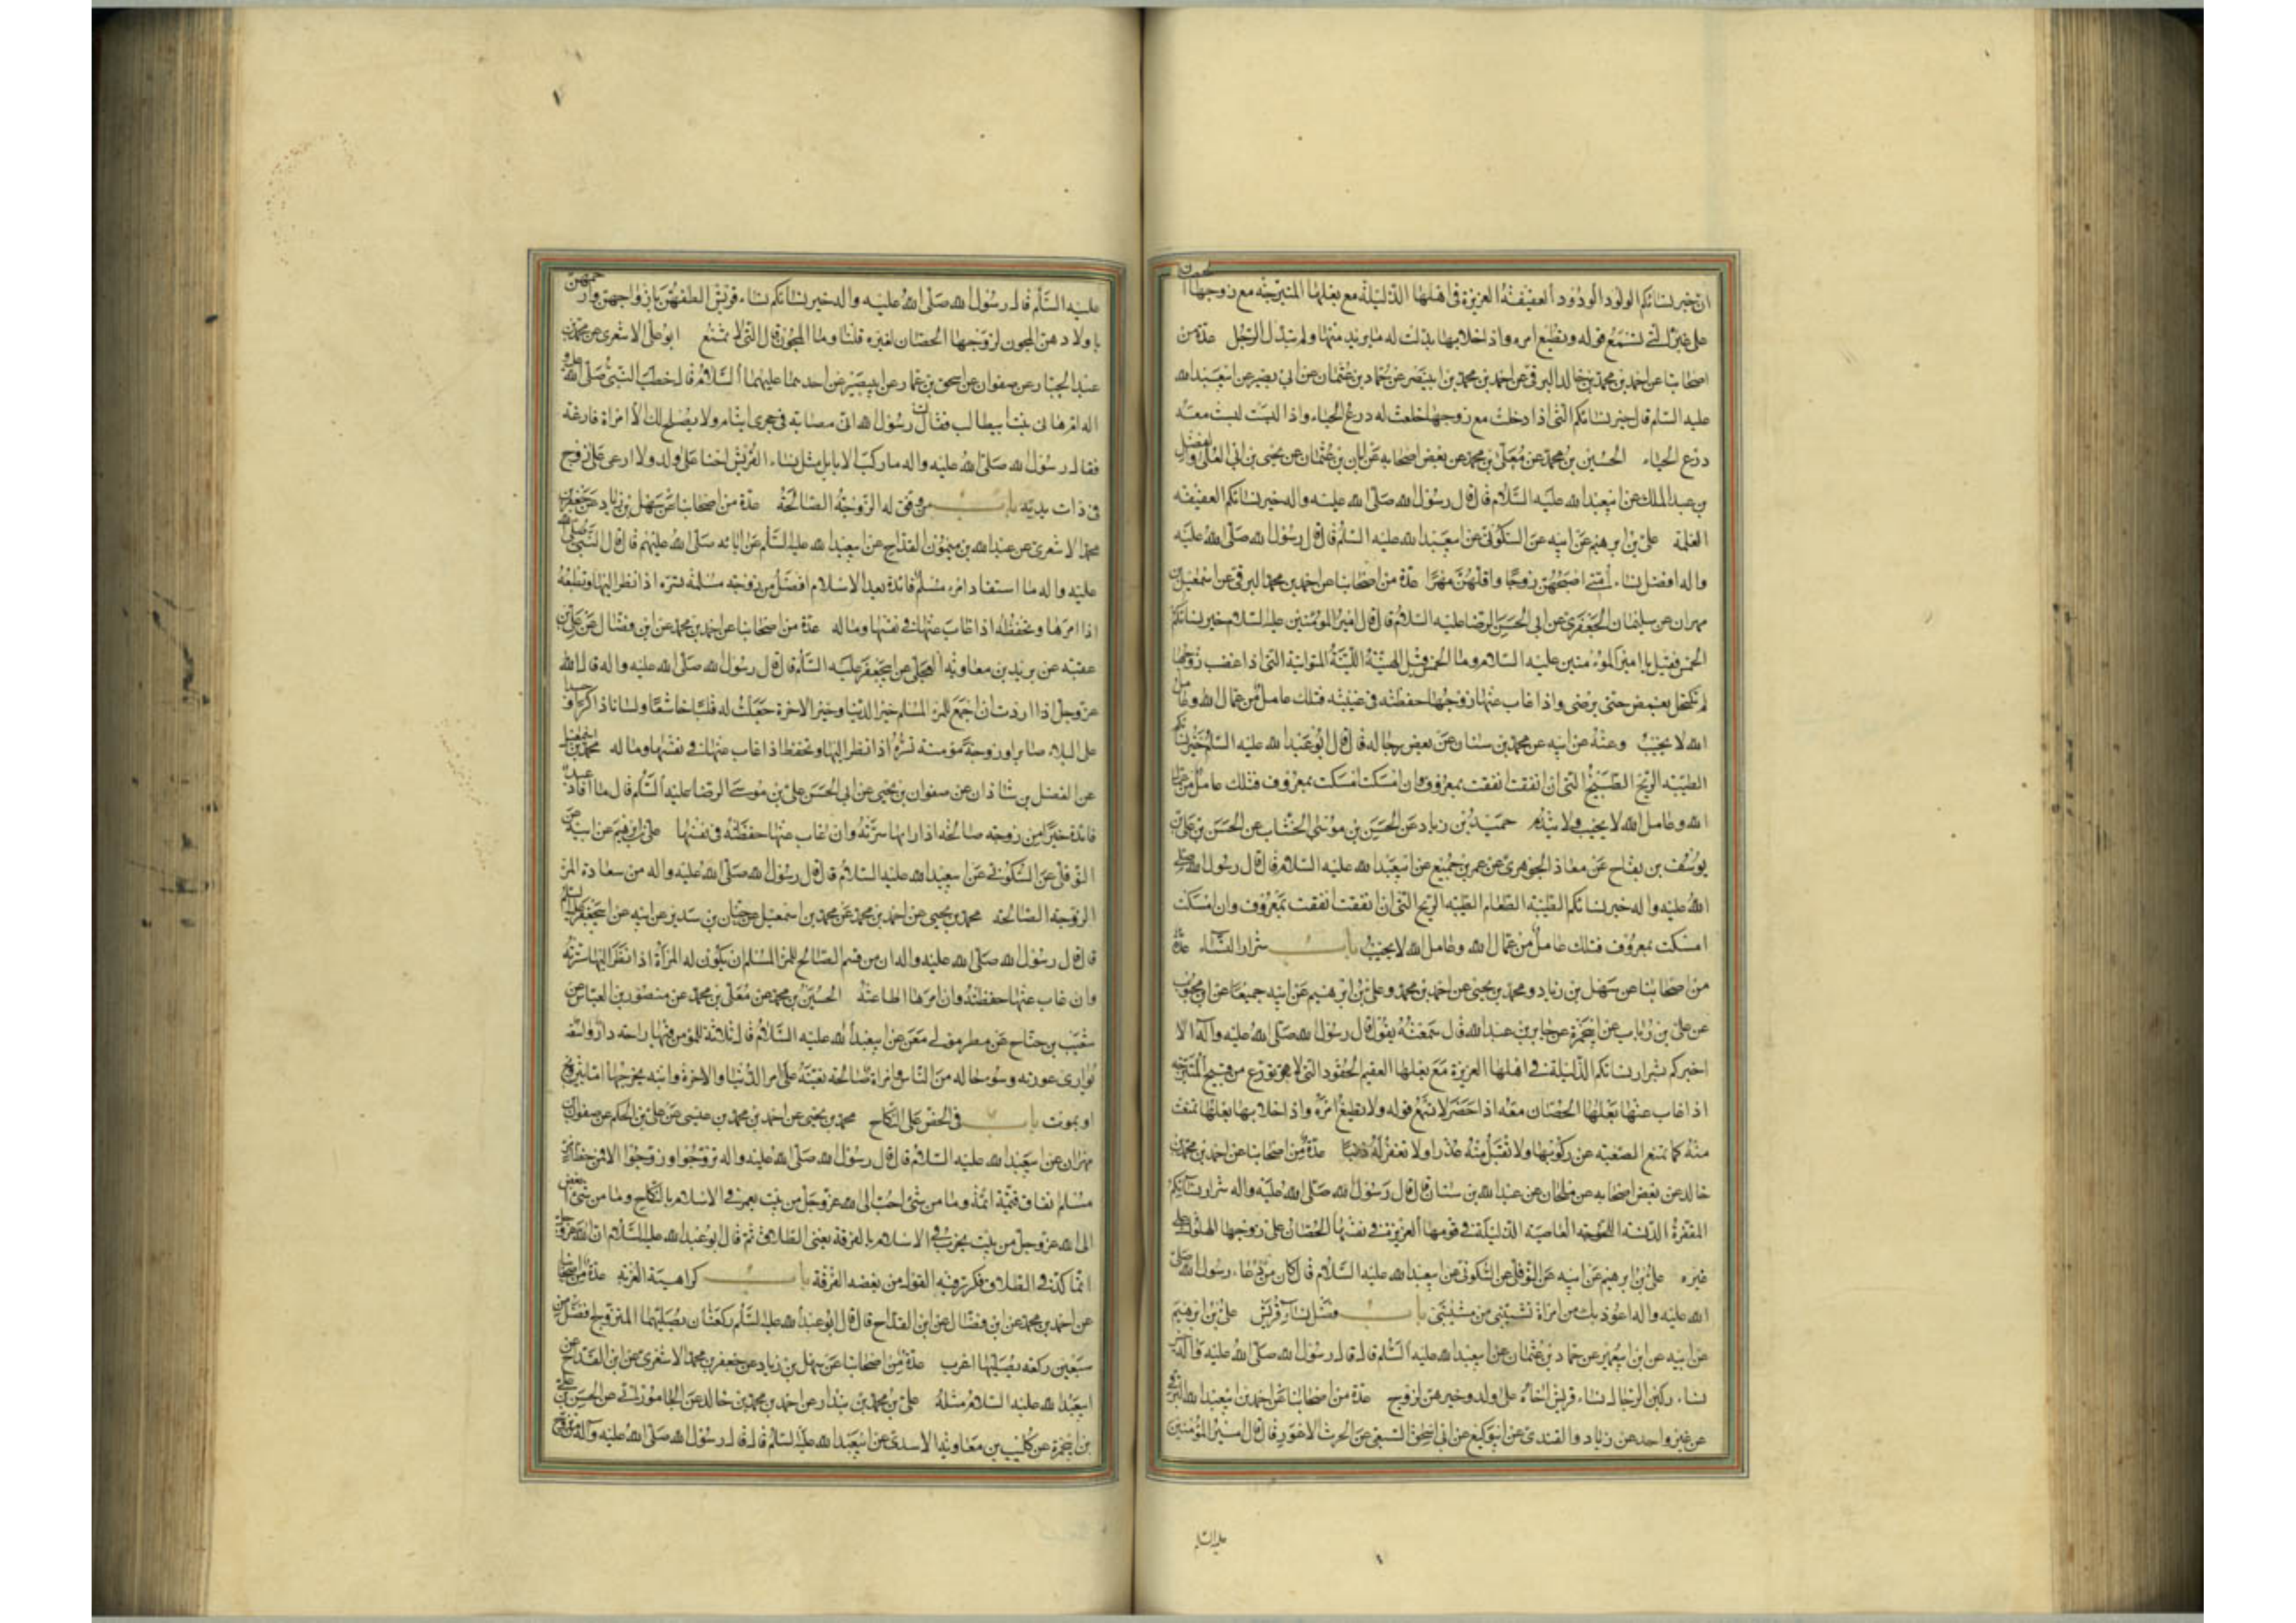 ان خير نسائكم الولود الودود العفيفة العزيزة في اهلها الذليلة مع بعلها المتبرجة مع زوجها الحصان
على غيره التي تسمع قوله وتطيع امره واذا خلا بها بذلت له ما يريد منها ولم تبذل كتبذل الرجل عدة من
اصحابنا عن احمد بن محمد بن خالد البرقي عن احمد بن محمد بن ابي نصر عن حماد بن عثمان عن ابي بصير عن ابي عبد الله
عليه السلم قال خير نسائكم التي اذا دخلت مع زوجها خلعت له درع الحياء واذا لبست لبست معه
درع الحياء الحسين بن محمد عن معلى بن محمد عن بعض اصحابه عن ابان بن عثمان عن يحيى بن ابي العلا والفضل
بن عبد الملك عن ابي عبد الله عليه السلام قال قال رسول الله صلى الله عليه واله خير نسائكم العفيفة
الغلمة على بن ابرهيم عن ابيه عن السكوني عن ابي عبد الله عليه السلم قال قال رسول الله صلى الله عليه
واله افضل نساء امتي اصبحهن زوجا واقلهن مهرا عدة من اصحابنا عن احمد بن محمد البرقي عن اسمعيل بن
مهران عن سليمان الجعفري عن ابي الحسن الرضا عليه السلام قال قال امير المؤمنين عليه السلام خير نسائكم
الخمس فقيل يا امير المؤمنين عليه السلام وما الخمس قيل الهينة اللينة المواتية التي اذا غضب زوجها
لم تكتحل بغمض حتى يرضى واذا غاب عنها زوجها حفظته في غيبته فتلك عامل من عمال الله وعامل
الله لا يخيب وعنه عن ابيه عن محمد بن سنان عن بعض رجاله قال قال ابو عبد الله عليه السلم خير نسائكم
الطيبة الريح الطبيخ التي ان انفقت انفقت بمعروف وان امسكت امسكت بمعروف فتلك عامل من عمال
الله وعامل الله لا يخيب ولا يندم حميد بن زياد عن الحسن بن موسى الخشاب عن الحسن بن علي بن
يوسف بن بقاح عن معاذ الجوهري عن عمرو بن جميع عن ابي عبد الله عليه السلام قال قال رسول الله صلى
الله عليه واله خير نسائكم الطيبة الطعام الطيبة الريح التي ان انفقت انفقت بمعروف وان امسكت
امسكت بمعروف فتلك عامل من عمال الله وعامل الله لا يخيب باب شرار النساء عدة
من اصحابنا عن سهل بن زياد ومحمد بن يحيى عن احمد بن محمد وعلي بن ابرهيم عن ابيه جميعا عن ابن محبوب
عن علي بن رئاب عن ابي حمزة عن جابر بن عبد الله قال سمعته يقول قال رسول الله صلى الله عليه واله الا
اخبركم بشرار نسائكم الذليلة في اهلها العزيزة مع بعلها العقيم الحقود التي لا تورع من قبيح المتبرجة
اذا غاب عنها بعلها الحصان معه اذا حضر لا تسمع قوله ولا تطيع امره واذا خلا بها بعلها تمنعت
منه كما تمنع الصعبة عن ركوبها ولا تقبل منه عذرا ولا تغفر له ذنبا عدة من اصحابنا عن احمد بن محمد بن
خالد عن بعض اصحابه عن ملحان عن عبد الله بن سنان قال قال رسول الله صلى الله عليه واله شرار نسائكم
المقفرة الدنسة اللجوجة العاصية الذليلة في قومها العزيزة في نفسها الحصان على زوجها الهلوك على
غيره على بن ابرهيم عن ابيه عن النوفلي عن السكوني عن ابي عبد الله عليه السلام قال كان من دعاء رسول الله صلى
الله عليه واله اعوذ بك من امراة تشيبني من مشيبتي باب فضل نساء قريش على بن ابرهيم
عن ابيه عن ابن ابي عمير عن حماد بن عثمان عن ابي عبد الله عليه السلم قال قال رسول الله صلى الله عليه واله خير
نساء ركبن الرحال نساء قريش احناه على ولد وخيرهن لزوج عدة من اصحابنا عن احمد بن ابي عبد الله البرقي
عن غير واحد عن زياد القندي عن ابي وكيع عن ابي اسحق السبيعي عن الحرث الاعور قال قال امير المؤمنين
عليه السلم
عليه السلم قال رسول الله صلى الله عليه واله خير نسائكم نساء قريش الطفهن بازواجهن وارحمهن
باولادهن المجون لزوجها الحصان لغيره قلنا وما المجون قال التي لا تمتنع ابو علي الاشعري عن محمد بن
عبد الجبار عن صفوان عن اسحق بن عمار عن ابي بصير عن احدهما عليهما السلام قال خطب النبي صلى الله عليه
واله ام هاني بنت ابي طالب فقالت رسول الله اني مصابة في حجري ايتام ولا يصلح لك الا امراة فارغة
فقال رسول الله صلى الله عليه واله ما ركب الابل مثل نساء القريش احنا على ولد ولا ارعى على زوج
في ذات يديه باب من وفق له الزوجة الصالحة عدة من اصحابنا عن سهل بن زياد عن جعفر بن
محمد الاشعري عن عبد الله بن ميمون القداح عن ابي عبد الله عليه السلم عن ابائه صلى الله عليهم قال قال النبي صلى الله
عليه واله ما استفاد امرء مسلم فائدة بعد الاسلام افضل من زوجة مسلمة تسره اذا نظر اليها وتطيعه
اذا امرها وتحفظه اذا غاب عنها في نفسها وماله عدة من اصحابنا عن احمد بن محمد عن ابن فضال عن علي بن
عقبة عن بريد بن معاوية العجلي عن ابي جعفر عليه السلم قال قال رسول الله صلى الله عليه واله قال الله
عز وجل اذا اردت ان اجمع للمرء المسلم خير الدنيا وخير الاخرة جعلت له قلبا خاشعا ولسانا ذاكرا وجسدا
على البلاء صابرا وزوجة مؤمنة تسره اذا نظر اليها وتحفظه اذا غاب عنها في نفسها وماله محمد بن اسمعيل
عن الفضل بن شاذان عن صفوان بن يحيى عن ابي الحسن علي بن موسى الرضا عليه السلم قال ما افاد عبد
فائدة خيرا من زوجة صالحة اذا راها سرته وان غاب عنها حفظته في نفسها على بن ابرهيم عن ابيه عن
النوفلي عن السكوني عن ابي عبد الله عليه السلام قال قال رسول الله صلى الله عليه واله من سعادة المرء
الزوجة الصالحة محمد بن يحيى عن احمد بن محمد عن محمد بن اسمعيل عن حنان بن سدير عن ابيه عن ابي جعفر عليه السلم
قال قال رسول الله صلى الله عليه واله ان من قسم الصالح للمرء المسلم ان يكون له المرأة اذا نظر اليها سرته
وان غاب عنها حفظته وان امرها اطاعته الحسين بن محمد عن معلى بن محمد عن منصور بن العباس عن
شعيب بن جناح عن مطر مولى معن عن ابي عبد الله عليه السلام قال ثلاثة للمؤمن فيها راحة دار واسعة
تواري عورته وسوء حاله من الناس وامراة صالحة تعينه على امر الدنيا والاخرة وابنه يخرجها اما بتزويج
او بموت باب في الحض على النكاح محمد بن يحيى عن احمد بن محمد بن عيسى عن علي بن الحكم عن صفوان بن
مهران عن ابي عبد الله عليه السلام قال قال رسول الله صلى الله عليه واله تزوجوا وزوجوا الا فمن حظ امرء
مسلم نفاق قيمة ائمة وما من شئ احب الى الله عز وجل من بيت يعمر في الاسلام بالنكاح وما من شئ ابغض
الى الله عز وجل من بيت يخرب في الاسلام بالفرقة يعني الطلاق ثم قال ابو عبد الله عليه السلام ان الله عز وجل
انما اكد في الطلاق وكرر فيه القول من بغضه الفرقة باب كراهية العزبة عدة من اصحابنا
عن احمد بن محمد عن ابن فضال عن ابن القداح قال قال ابو عبد الله عليه السلم ركعتان يصليهما المتزوج افضل من
سبعين ركعة يصليها اعزب عدة من اصحابنا عن سهل بن زياد عن جعفر بن محمد الاشعري عن ابن القداح عن
ابي عبد الله عليه السلام مثله على بن محمد بن بندار عن احمد بن محمد بن خالد عن الجاموراني عن الحسن بن علي
بن ابي حمزة عن كليب بن معاوية الاسدي عن ابي عبد الله عليه السلم قال قال رسول الله صلى الله عليه واله من تزوج